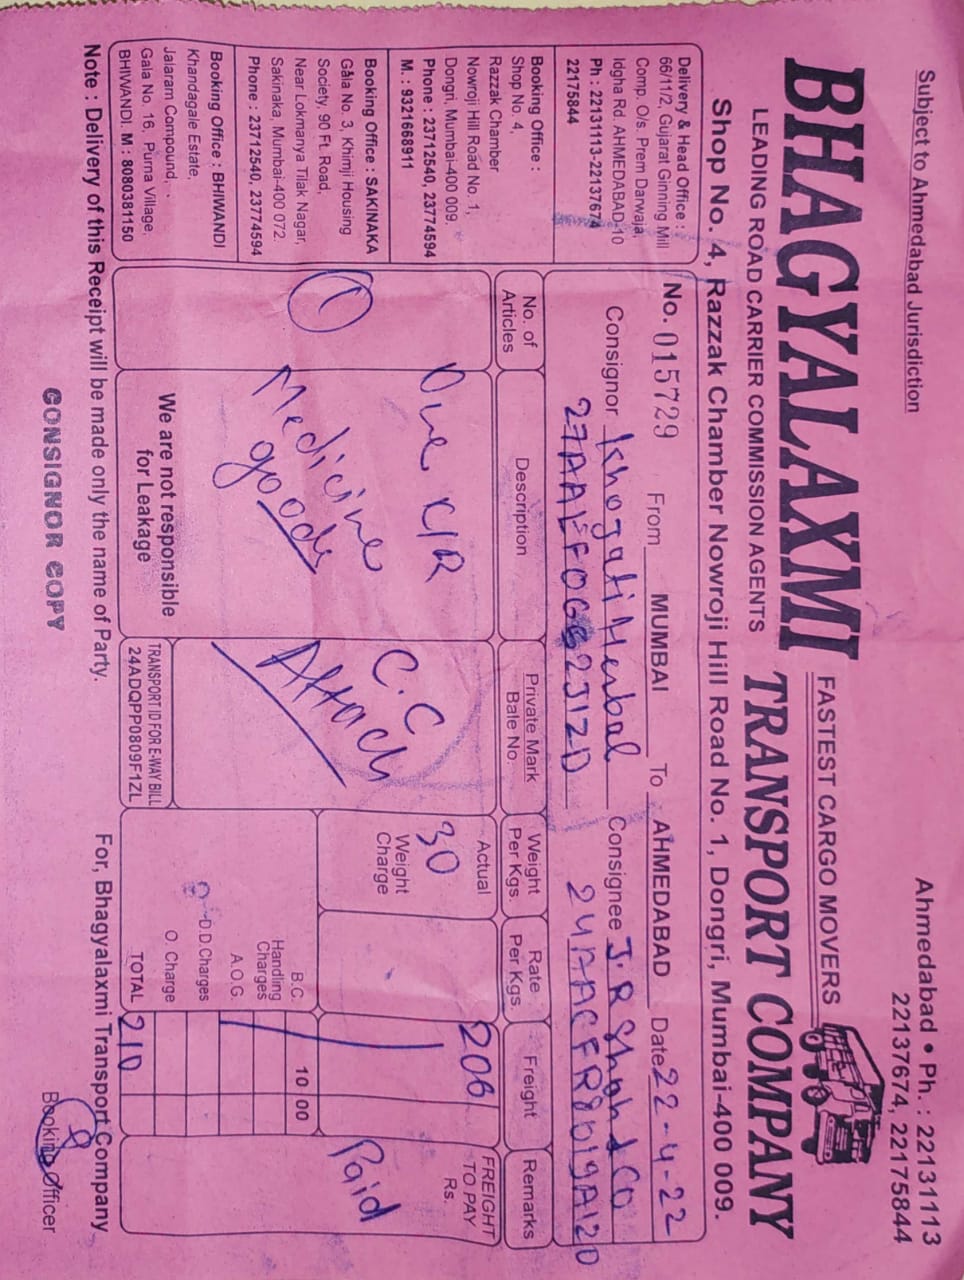 Subject to Ahmedabad Jurisdiction
Ahmedabad • Ph. : 22131113
22137674, 22175844
FASTEST CARGO MOVERS
BHAGYALAXMI TRANSPORT COMPANY
LEADING ROAD CARRIER COMMISSION AGENTS
Shop No. 4, Razzak Chamber Nowroji Hill Road No. 1, Dongri, Mumbai-400 009.
Delivery & Head Office :
66/11/2, Gujarat Gining Mill
Comp. O/s. Prem Darwaja,
Idgha Rd. AHMEDABAD-10
Ph : 22131113-22137674
22175844
Booking Office :
Shop No. 4,
Razzak Chamber
Nowroji Hill Road No. 1,
Dongri, Mumbai-400 009.
Phone : 23712540, 23774594
M. : 9321668911
Booking Office : SAKINAKA
Gala No. 3, Khimji Housing
Society, 90 Ft. Road,
Near Lokmanya Tilak Nagar,
Sakinaka, Mumbai-400 072.
Phone : 23712540, 23774594
Booking Office : BHIWANDI
Khandagale Estate,
Jalaram Compound,
Gala No. 16, Purna Village,
BHIWANDI. M : 8080381150
No. 015729 From MUMBAI To AHMEDABAD Date 22-4-22
Consignor Herbal Consignee J.R Shah & Co
No. of Articles Description Private Mark Bale No. Weight Per Kgs. Rate Per Kgs. Freight Remarks
1 One C/R
Medicine
goods
C.C
Attach
Actual
30
Weight
Charge
200
FREIGHT
TO PAY
Rs.
Paid
B.C. 10 00
Handling
Charges
A.O.G.
D.D.Charges
O. Charge
TOTAL 210
We are not responsible
for Leakage
TRANSPORT ID FOR E-WAY BILL
24ADQPP0809F1ZL
Note : Delivery of this Receipt will be made only the name of Party.
For, Bhagyalaxmi Transport Company
Booking Officer
CONSIGNOR COPY